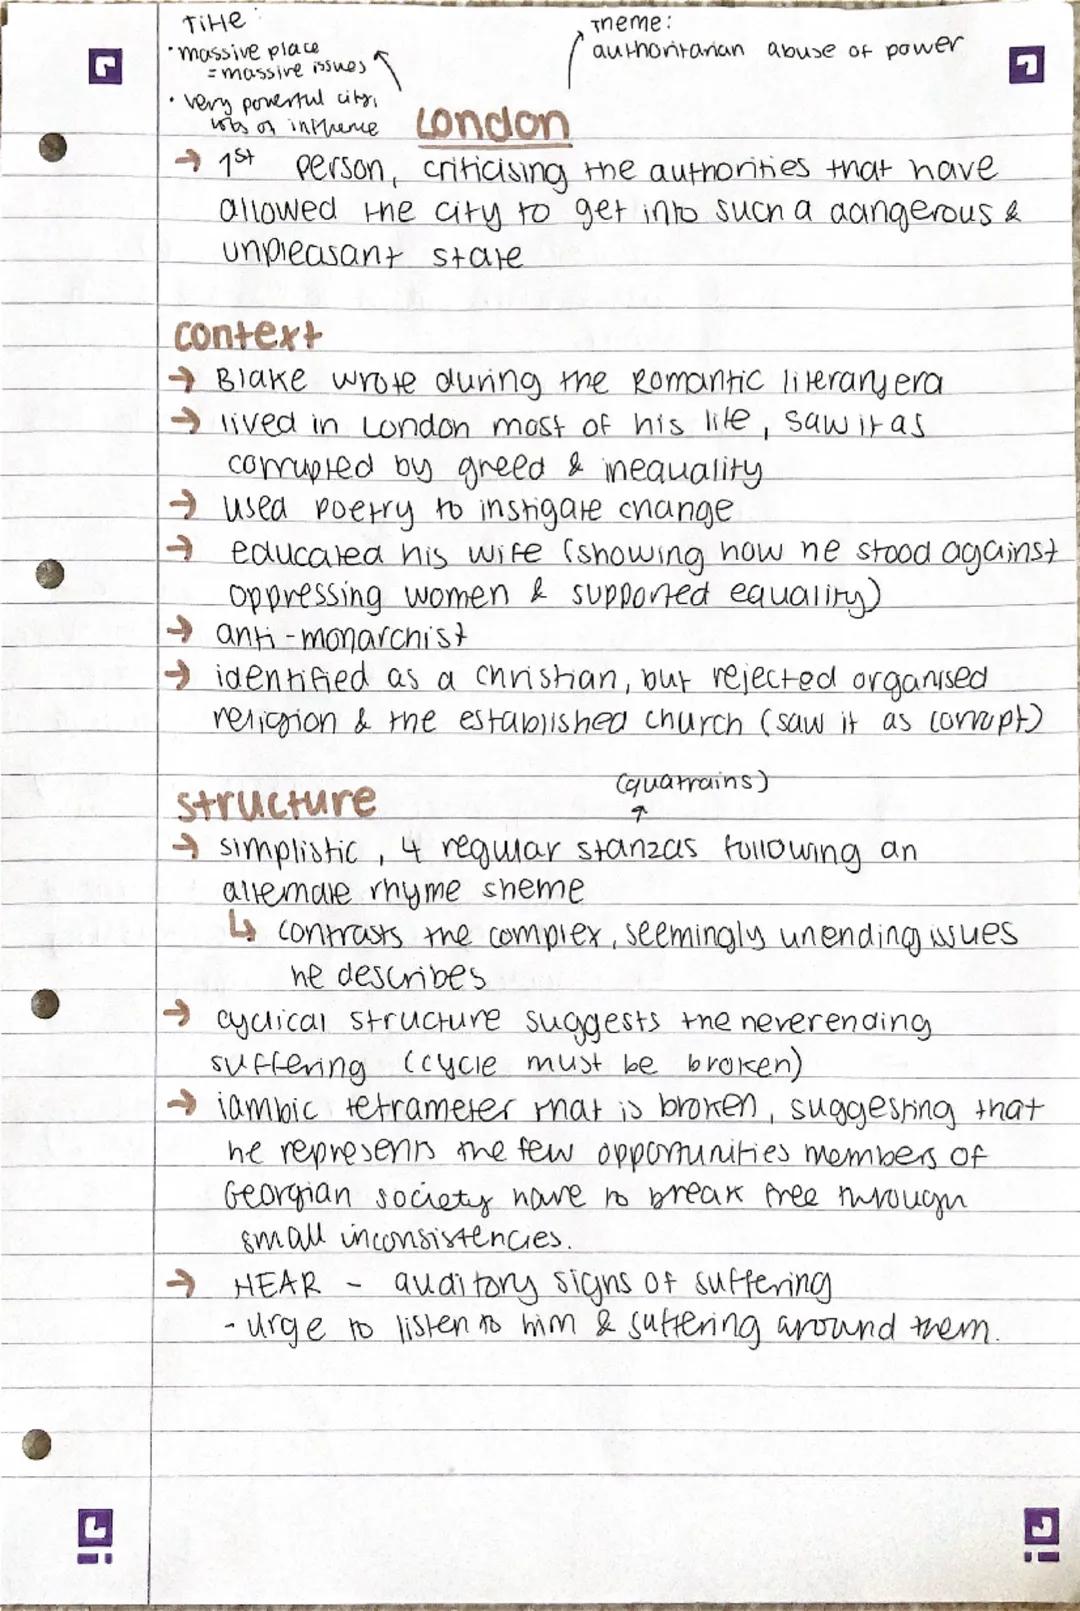 Title:
• massive place
= massive issues
• very powerful city,
lots of influence
Theme:
authoritarian abuse of power
London
→ 1st person, criticising the authorities that have
allowed the city to get into such a dangerous &
unpleasant state
context
→ Blake wrote during the Romantic literary era
→ lived in London most of his life, saw it as
corrupted by greed & inequality
→ used poetry to instigate change
→ educated his wife (showing how he stood against
oppressing women & supported equality)
→ anti-monarchist
→ identified as a christian, but rejected organised
religion & the established church (saw it as corrupt)
structure
(quatrains)
→ simplistic, 4 regular stanzas following an
alternate rhyme sheme
↳ contrasts the complex, seemingly unending issues
he describes
→ cyclical structure suggests the neverending
suffering (cycle must be broken)
→ iambic tetrameter that is broken, suggesting that
he represents the few opportunities members of
Georgian society have to break free through
small inconsistencies.
→ HEAR - auditory signs of suffering
- urge to listen to him & suffering around them.